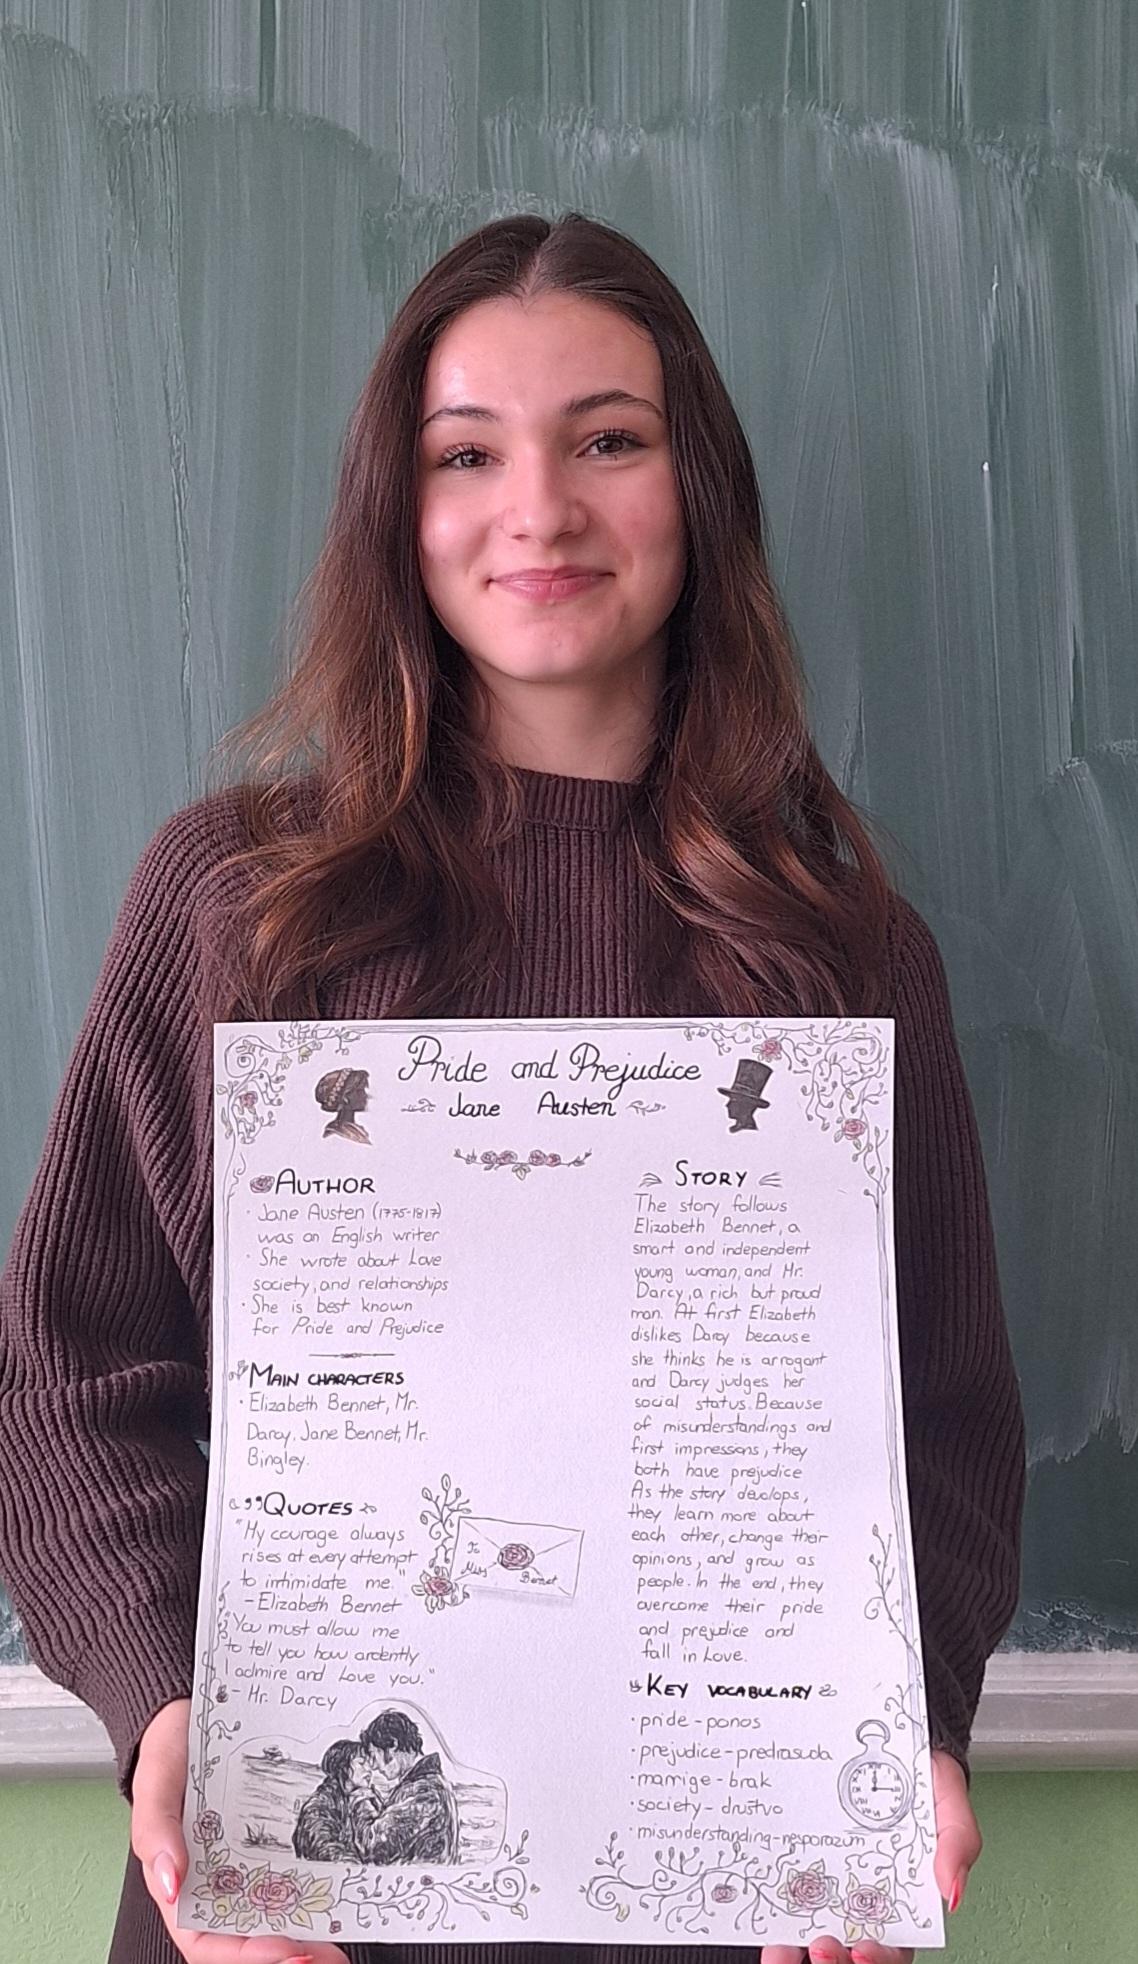 Pride and Prejudice
Jane Austen
AUTHOR
· Jane Austen (1775-1817)
was an English writer
· She wrote about Love
society, and relationships
· She is best known
for Pride and Prejudice
MAIN CHARACTERS
· Elizabeth Bennet, Mr.
Darcy, Jane Bennet, Mr.
Bingley.
QUOTES
"My courage always
rises at every attempt
to intimidate me."
- Elizabeth Bennet
"You must allow me
to tell you how ardently
I admire and Love you."
- Mr. Darcy
To
Miss
Bennet
STORY
The story follows
Elizabeth Bennet, a
smart and independent
young woman, and Mr.
Darcy, a rich but proud
man. At first Elizabeth
dislikes Darcy because
she thinks he is arrogant
and Darcy judges her
social status. Because
of misunderstandings and
first impressions, they
both have prejudice
As the story develops,
they learn more about
each other, change their
opinions, and grow as
people. In the end, they
overcome their pride
and prejudice and
fall in Love.
KEY VOCABULARY
· pride - ponos
· prejudice - predrasuda
· marrige - brak
· society - društvo
· misunderstanding - nesporazum